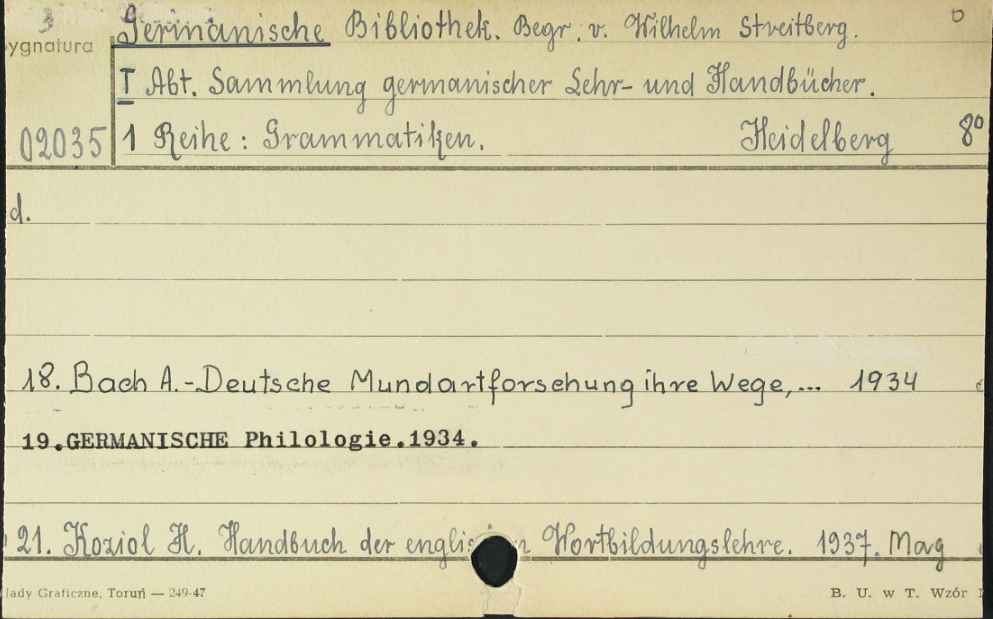 3 Germanische Bibliothek. Begr. v. Wilhelm Streitberg.
ygnatura
I Abt. Sammlung germanischer Lehr- und Handbücher.
02035 1 Reihe: Grammatiken. Heidelberg 8°
d.
18. Bach A.-Deutsche Mundartforschung ihre Wege,... 1934
19.GERMANISCHE Philologie.1934.
21. Koziol H. Handbuch der Wortbildungslehre. 1937. Mag
łady Graficzne, Toruń — 249-47 B. U. w T. Wzór